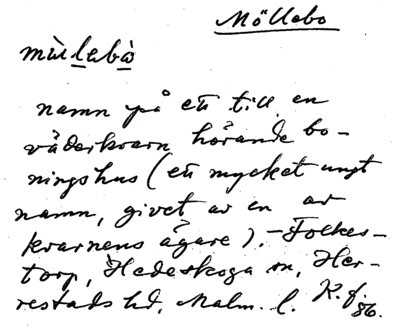 Möllebo
mùlebò
namn på ett till en
väderkvarn hörande bo-
ningshus (ett mycket ungt
namn, givet av en av
kvarnens ägare). – Folkes-
torp, Hedeskoga sn, Her-
restads hd, Malm. l. K. f. 86.